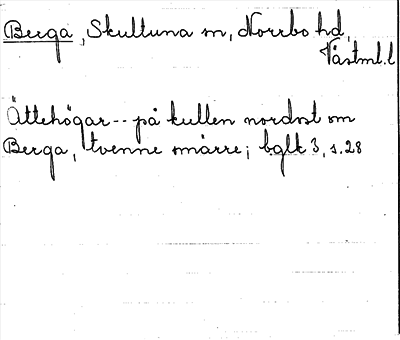 Berga, Skultuna sn, Norrbo hd,
Västml.l
Ättehögar -- på kullen nordost om
Berga, tvenne smärre; bglk 3, s.28